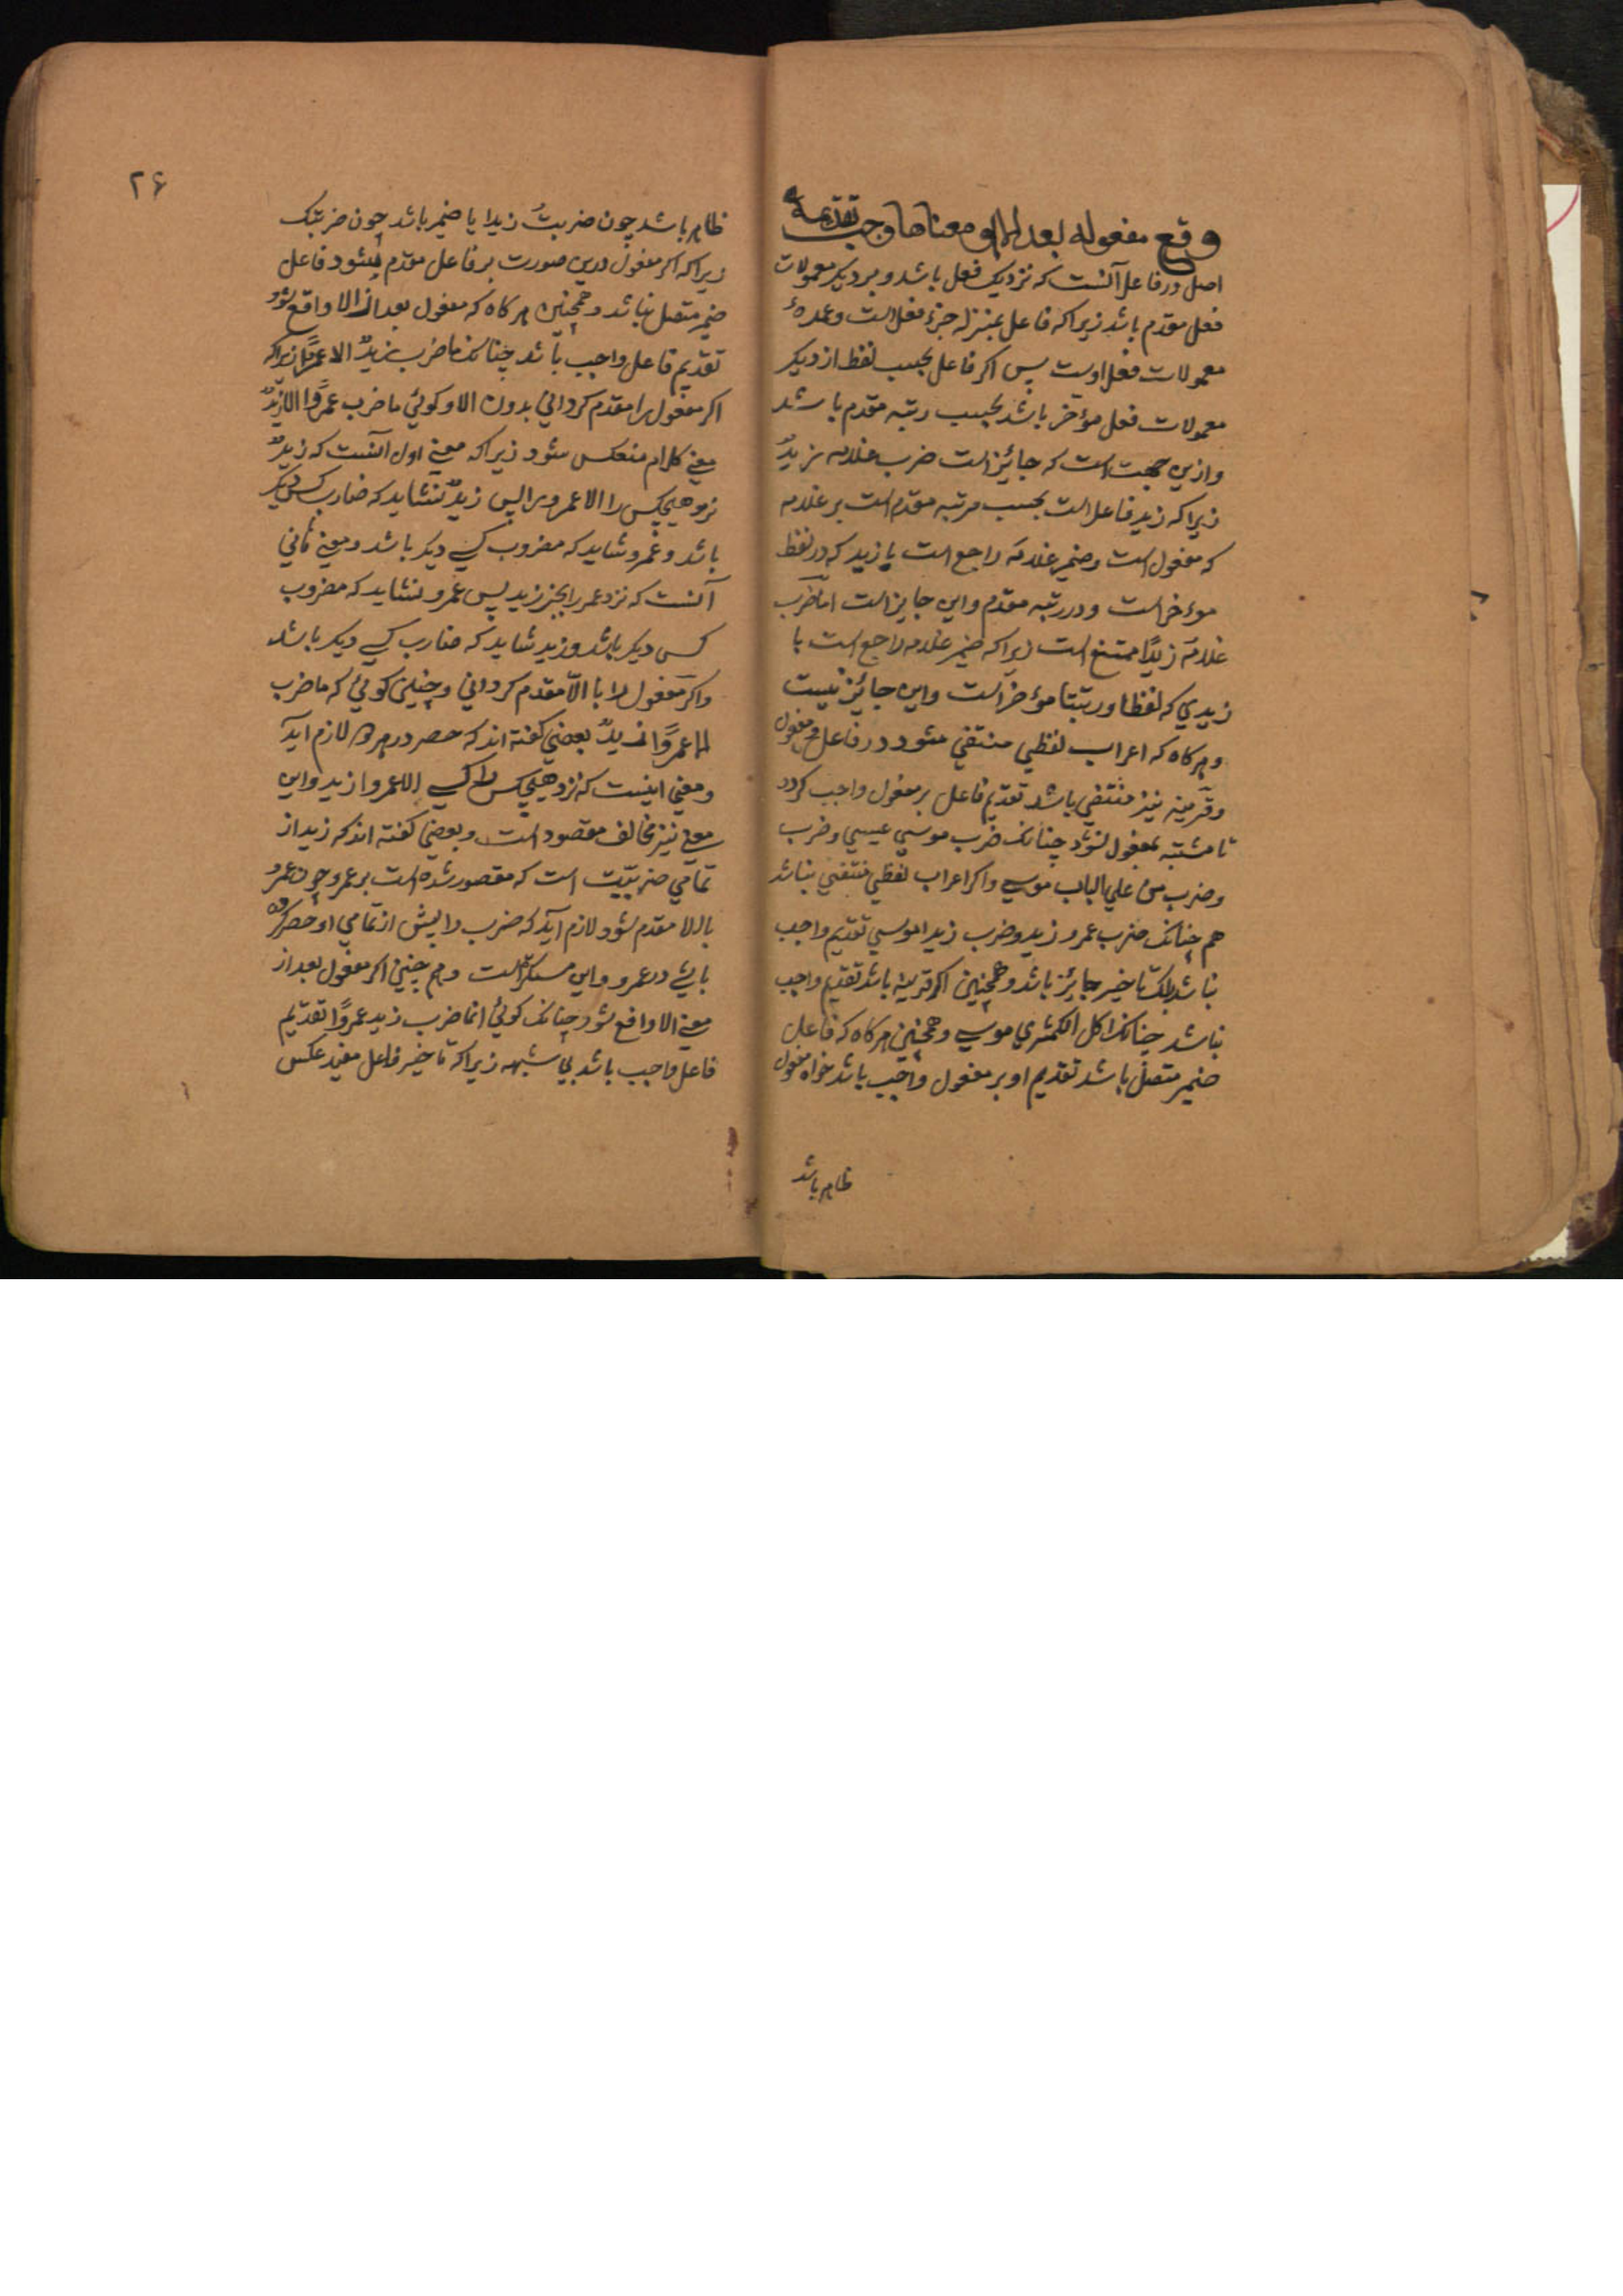 وقع مفعوله بعد الا او معناها وجب تقديمه
اصل در فاعل آنست که نزدیک فعل باشد و بر دیکر معمولات
فعل مقدم باشد زیرا که فاعل بمنزله جزء فعل است و عمده
معمولات فعل اوست پس اکر فاعل بحسب لفظ از دیکر
معمولات فعل مؤخر باشد بحسب رتبه مقدم باشد
و ازین جهت است که جائز است ضرب غلامه زیدٌ
زیرا که زید فاعل است بحسب مرتبه مقدم است بر غلامه
که مفعول است و ضمیر غلامه راجع است یا زید که در لفظ
موءخر است و در رتبه مقدم و این جایز است اما ضرب
غلامه زیدًا ممتنع است زیرا که ضمیر غلامه راجع است با
زیدي که لفظا و رتبتا مؤخر است و این جائز نیست
و هرکاه که اعراب لفظي منتفي شود در فاعل و مفعول
و قرینه نیز منتفي باشد تقدیم فاعل بر مفعول واجب کردد
تا مشتبه بمفعول نشود چنانک ضرب موسي عیسي و ضرب
و ضرب من علي الباب موسي و اکر اعراب لفظي منتفي نباشد
هم چنانک ضرب عمرو زید و ضرب زیدا موسي تقدیم واجب
نباشد بلک تاخیر جائز باشد و همچنین اکر قرینه باشد تقدیم واجب
نباشد چنانک اکل الکمثري موسي و همچنین هرکاه که فاعل
ضمیر متصل باشد تقدیم او بر مفعول واجب باشد خواه مفعول
ظاهر باشد
۲۶
ظاهر باشد چون ضربتُ زیدا یا ضمیر باشد چون ضربتک
زیرا که اکر مفعول درین صورت بر فاعل مقدم شود فاعل
ضمیر متصل نباشد و همچنین هرکاه که مفعول بعد از الا واقع شود
تقدیم فاعل واجب باشد چنانک ما ضرب زیدٌ الا عمرًا زیرا که
اکر مفعول را مقدم کرداني بدون الا و کوئي ما ضرب عمرًوا الا زیدٌ
معني کلام منعکس شود زیرا که معني اول آنست که زیدٌ
نزد هیچکس را الا عمرو را پس زیدٌ نشاید که ضارب کس دیکر
باشد و عمرو شاید که مضروب کسي دیکر باشد و معني ثاني
آنست که نزد عمر را بجز زید پس عمرو نشاید که مضروب
کسی دیکر باشد و زید شاید که ضارب کسي دیکر باشد
و اکر مفعول را با الّا مقدم کرداني و چنین کوئي که ما ضرب
الا عمرًوا زیدٌ بعضي کفته اند که حصر در هر دو لازم آید
و معني اینست که نزد هیچکس را کسي الا عمروا زید و این
معني نیز مخالف مقصود است و بعضي کفته اند که زید از
تمامي ضربیّت است که مقصور شده است بر عمرو چون عمرو
با الا مقدم شود لازم آید که ضرب را پیش از تمامي او حصر کرده
باشي در عمرو و این مستکره است و هم چنین اکر مفعول بعد از
معني الا واقع شود چنانک کوئي انما ضرب زید عمرًوا تقدیم
فاعل واجب باشد بي شبهه زیرا که تاخیر فاعل مفید عکس